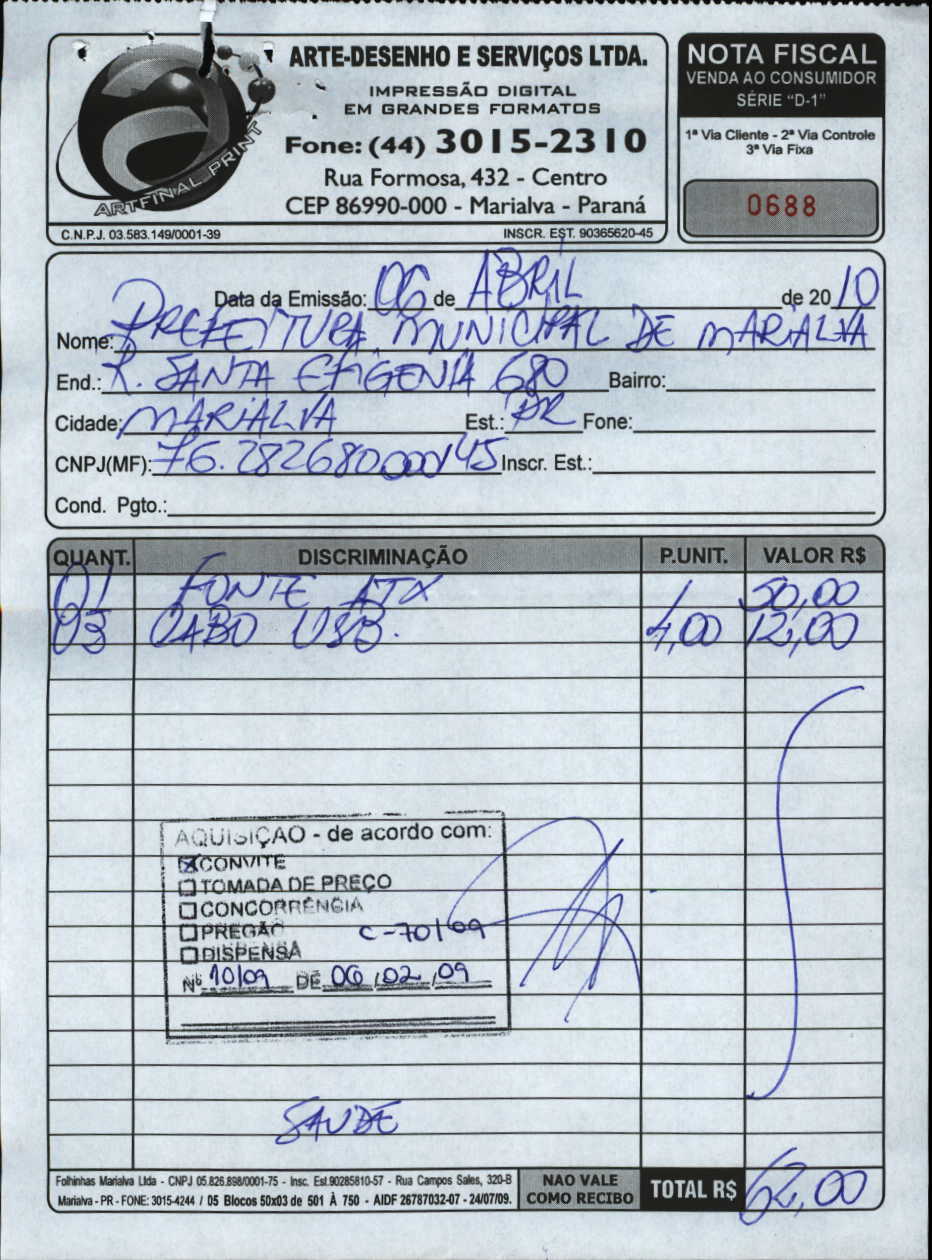 ARTE-DESENHO E SERVIÇOS LTDA.
IMPRESSÃO DIGITAL
EM GRANDES FORMATOS
Fone: (44) 3015-2310
Rua Formosa, 432 - Centro
CEP 86990-000 - Marialva - Paraná
ARTFINAL PRINT
C.N.P.J. 03.583.149/0001-39 INSCR. EST. 90365620-45
NOTA FISCAL
VENDA AO CONSUMIDOR
SÉRIE "D-1"
1ª Via Cliente - 2ª Via Controle
3ª Via Fixa
0688
Data da Emissão: 06 de ABRIL de 2010
Nome: PREFEITURA MUNICIPAL DE MARIALVA
End.: R. SANTA EFIGENIA 680 Bairro:
Cidade: MARIALVA Est.: PR Fone:
CNPJ(MF): 76.282680000/45 Inscr. Est.:
Cond. Pgto.:
QUANT. DISCRIMINAÇÃO P.UNIT. VALOR R$
01 FONTE ATX / 50,00
03 CABO USB. 4,00 12,00
AQUISIÇÃO - de acordo com:
☒ CONVITE
☐ TOMADA DE PREÇO
☐ CONCORRÊNCIA
☐ PREGÃO C-70/09
☐ DISPENSA
Nº 10/09 DE 06/02/09
SAUDE
Folhinhas Marialva Ltda - CNPJ 05.826.898/0001-75 - Insc. Est.90285810-57 - Rua Campos Sales, 320-B
Marialva - PR - FONE: 3015-4244 / 05 Blocos 50x03 de 501 À 750 - AIDF 26787032-07 - 24/07/09.
NAO VALE
COMO RECIBO
TOTAL R$ 62,00